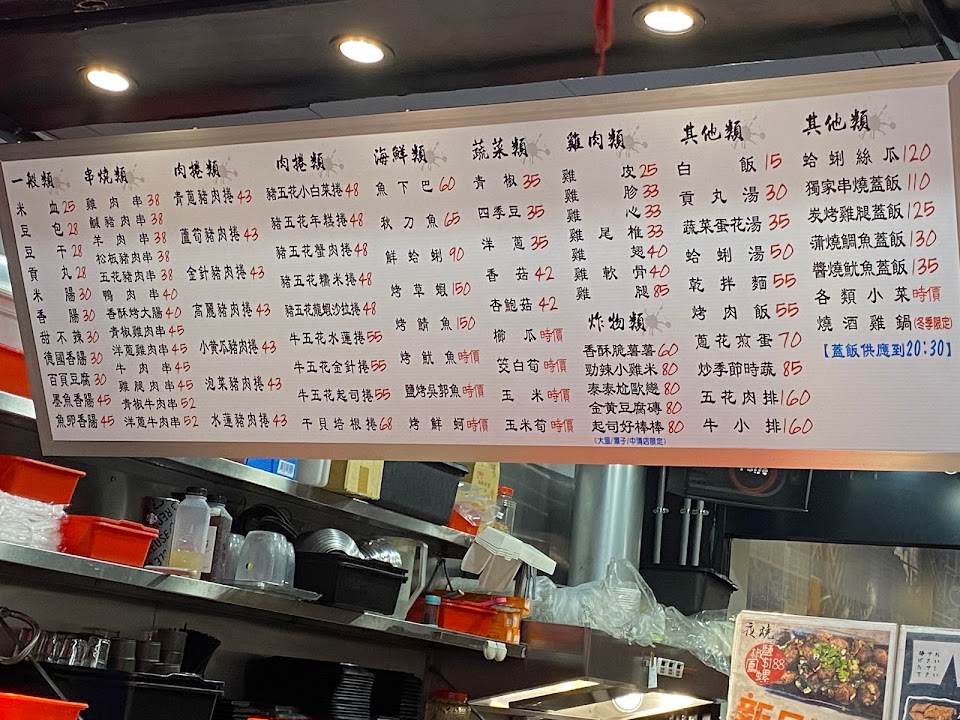 一般類
米血25
豆包28
豆干28
貢丸28
米腸30
香腸30
甜不辣30
德國香腸30
百頁豆腐30
墨魚香腸45
魚卵香腸45
串燒類
雞肉串38
鹹豬肉串38
羊肉串38
松板豬肉串38
五花豬肉串38
鴨肉串40
香酥烤大腸40
青椒雞肉串45
洋蔥雞肉串45
牛肉串45
雞腿肉串45
青椒牛肉串52
洋蔥牛肉串52
肉捲類
青蔥豬肉捲43
蘆筍豬肉捲43
金針豬肉捲43
高麗豬肉捲43
小黃瓜豬肉捲43
泡菜豬肉捲43
水蓮豬肉捲43
肉捲類
豬五花小白菜捲48
豬五花年糕捲48
豬五花蟹肉捲48
豬五花糯米捲48
豬五花龍蝦沙拉捲48
牛五花水蓮捲55
牛五花金針捲55
牛五花起司捲55
干貝培根捲68
海鮮類
魚下巴60
秋刀魚65
鮮蛤蜊90
烤草蝦150
烤鯖魚150
烤魷魚時價
鹽烤吳郭魚時價
烤鮮蚵時價
蔬菜類
青椒35
四季豆35
洋蔥35
香菇42
杏鮑菇42
櫛瓜時價
筊白筍時價
玉米時價
玉米筍時價
雞肉類
雞皮25
雞胗33
雞心33
雞尾椎33
雞翅40
雞軟骨40
雞腿85
炸物類
香酥脆薯薯60
勁辣小雞米80
泰泰尬歐戀80
金黃豆腐磚80
起司好棒棒80
(大里/潭子/中清店限定)
其他類
白飯15
貢丸湯30
蔬菜蛋花湯35
蛤蜊湯50
乾拌麵55
烤肉飯55
蔥花煎蛋70
炒季節時蔬85
五花肉排160
牛小排160
其他類
蛤蜊絲瓜120
獨家串燒蓋飯110
炭烤雞腿蓋飯125
蒲燒鯛魚蓋飯130
醬燒魷魚蓋飯135
各類小菜時價
燒酒雞鍋(冬季限定)
【蓋飯供應到20:30】
夜燒
$188